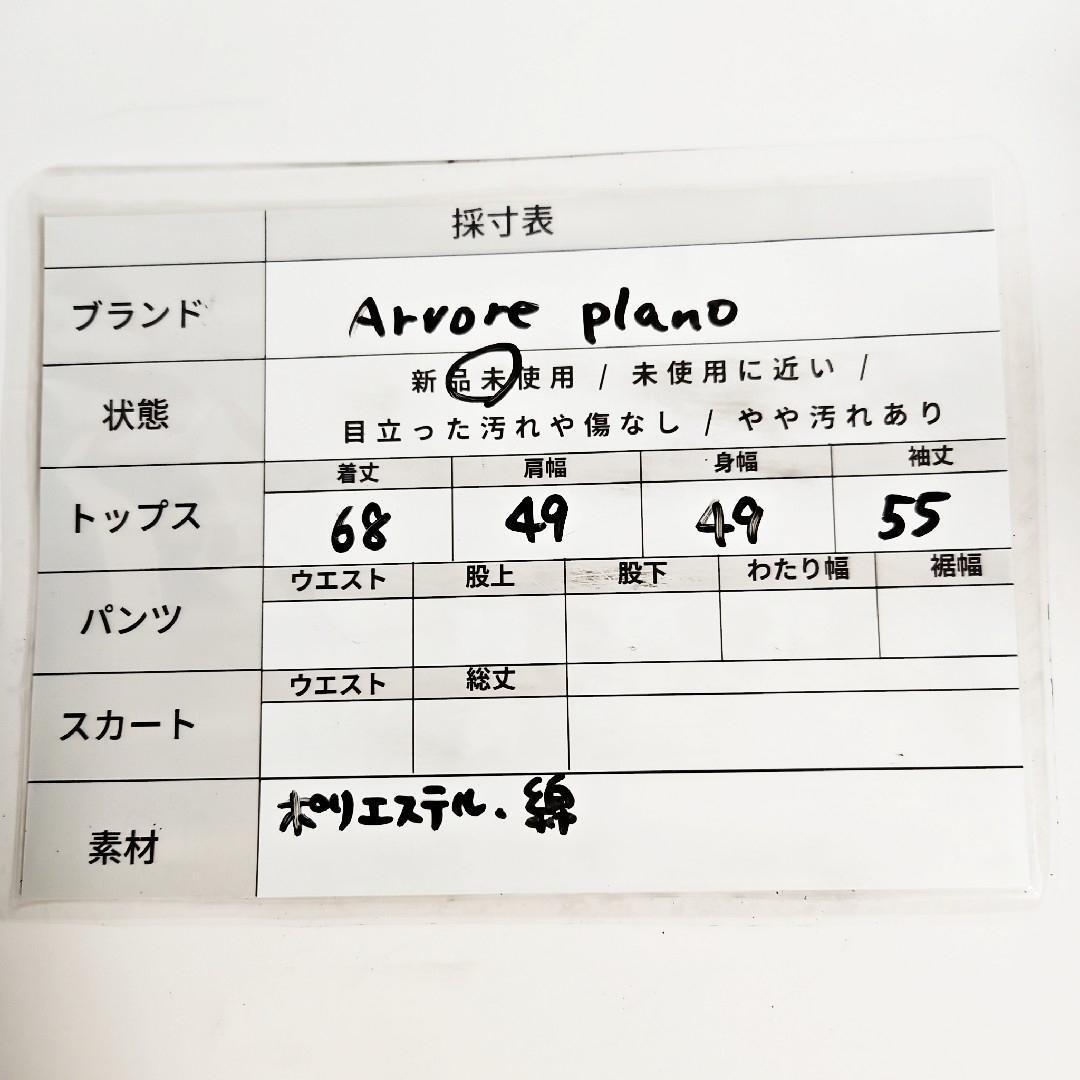 採寸表
ブランド Arvore plano
状態 新品未使用 / 未使用に近い /
目立った汚れや傷なし / やや汚れあり
着丈 肩幅 身幅 袖丈
トップス 68 49 49 55
ウエスト 股上 股下 わたり幅 裾幅
パンツ
ウエスト 総丈
スカート
ポリエステル.綿
素材